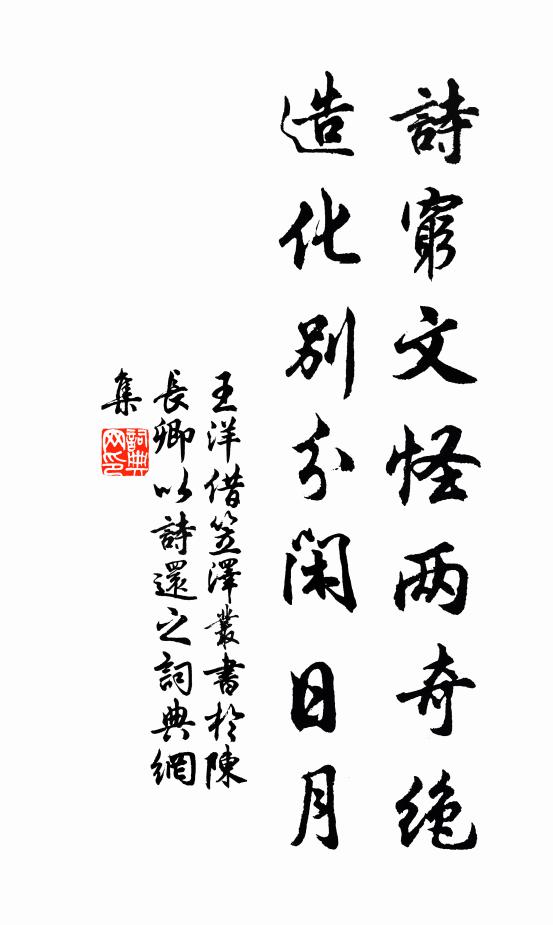 詩窮文怪两奇絶
造化別分閑日月
王洋借笠澤叢書於陳
長卿以詩還之詞典網
集
詞典
网印